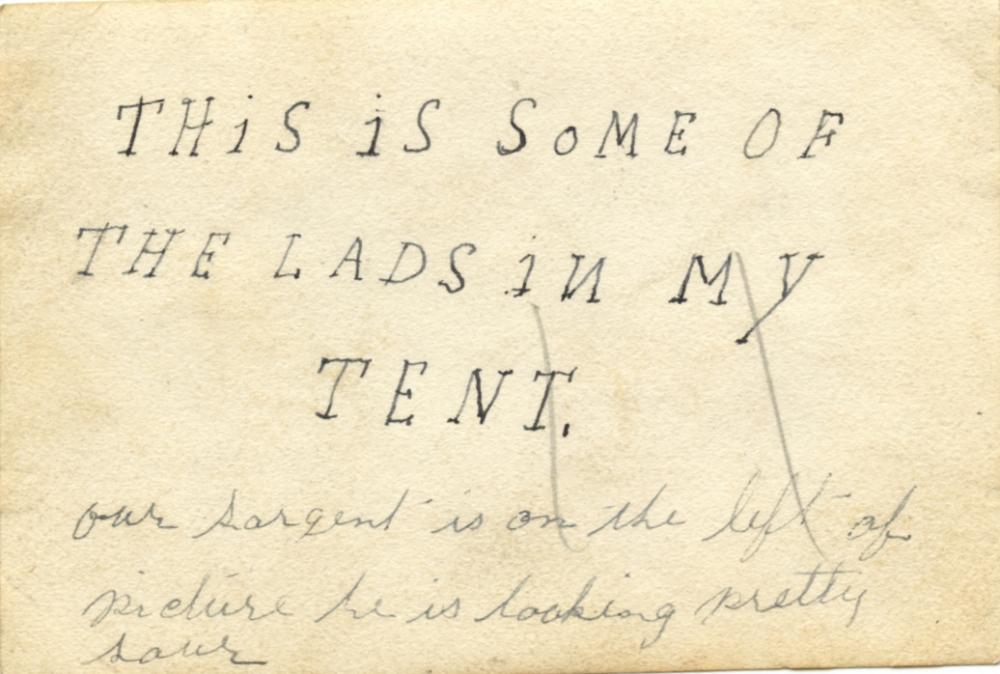 THiS iS SoME OF
THE LADS iN My
TENT.
our sargent is on the left of
picture he is looking pretty
sour